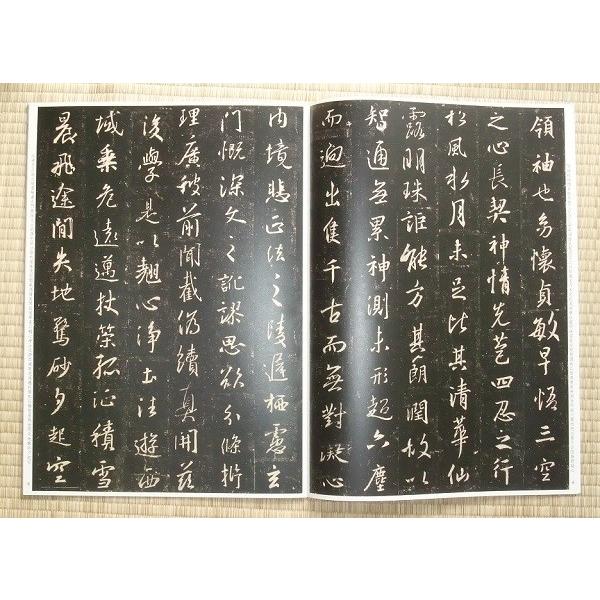 領袖也幼懷貞敏早悟三空
之心長契神情先苞四忍之行
松風水月未足比其清華仙
露明珠詎能方其朗潤故以
智通无累神測未形超六塵
而迥出隻千古而無對凝心
內境悲正法之陵遲栖慮玄
門慨深文之訛謬思欲分條析
理廣彼前聞截偽續真開茲
後學是以翹心淨土法遊西
域乘危遠邁杖策孤征積雪
晨飛途閒失地驚砂夕起空